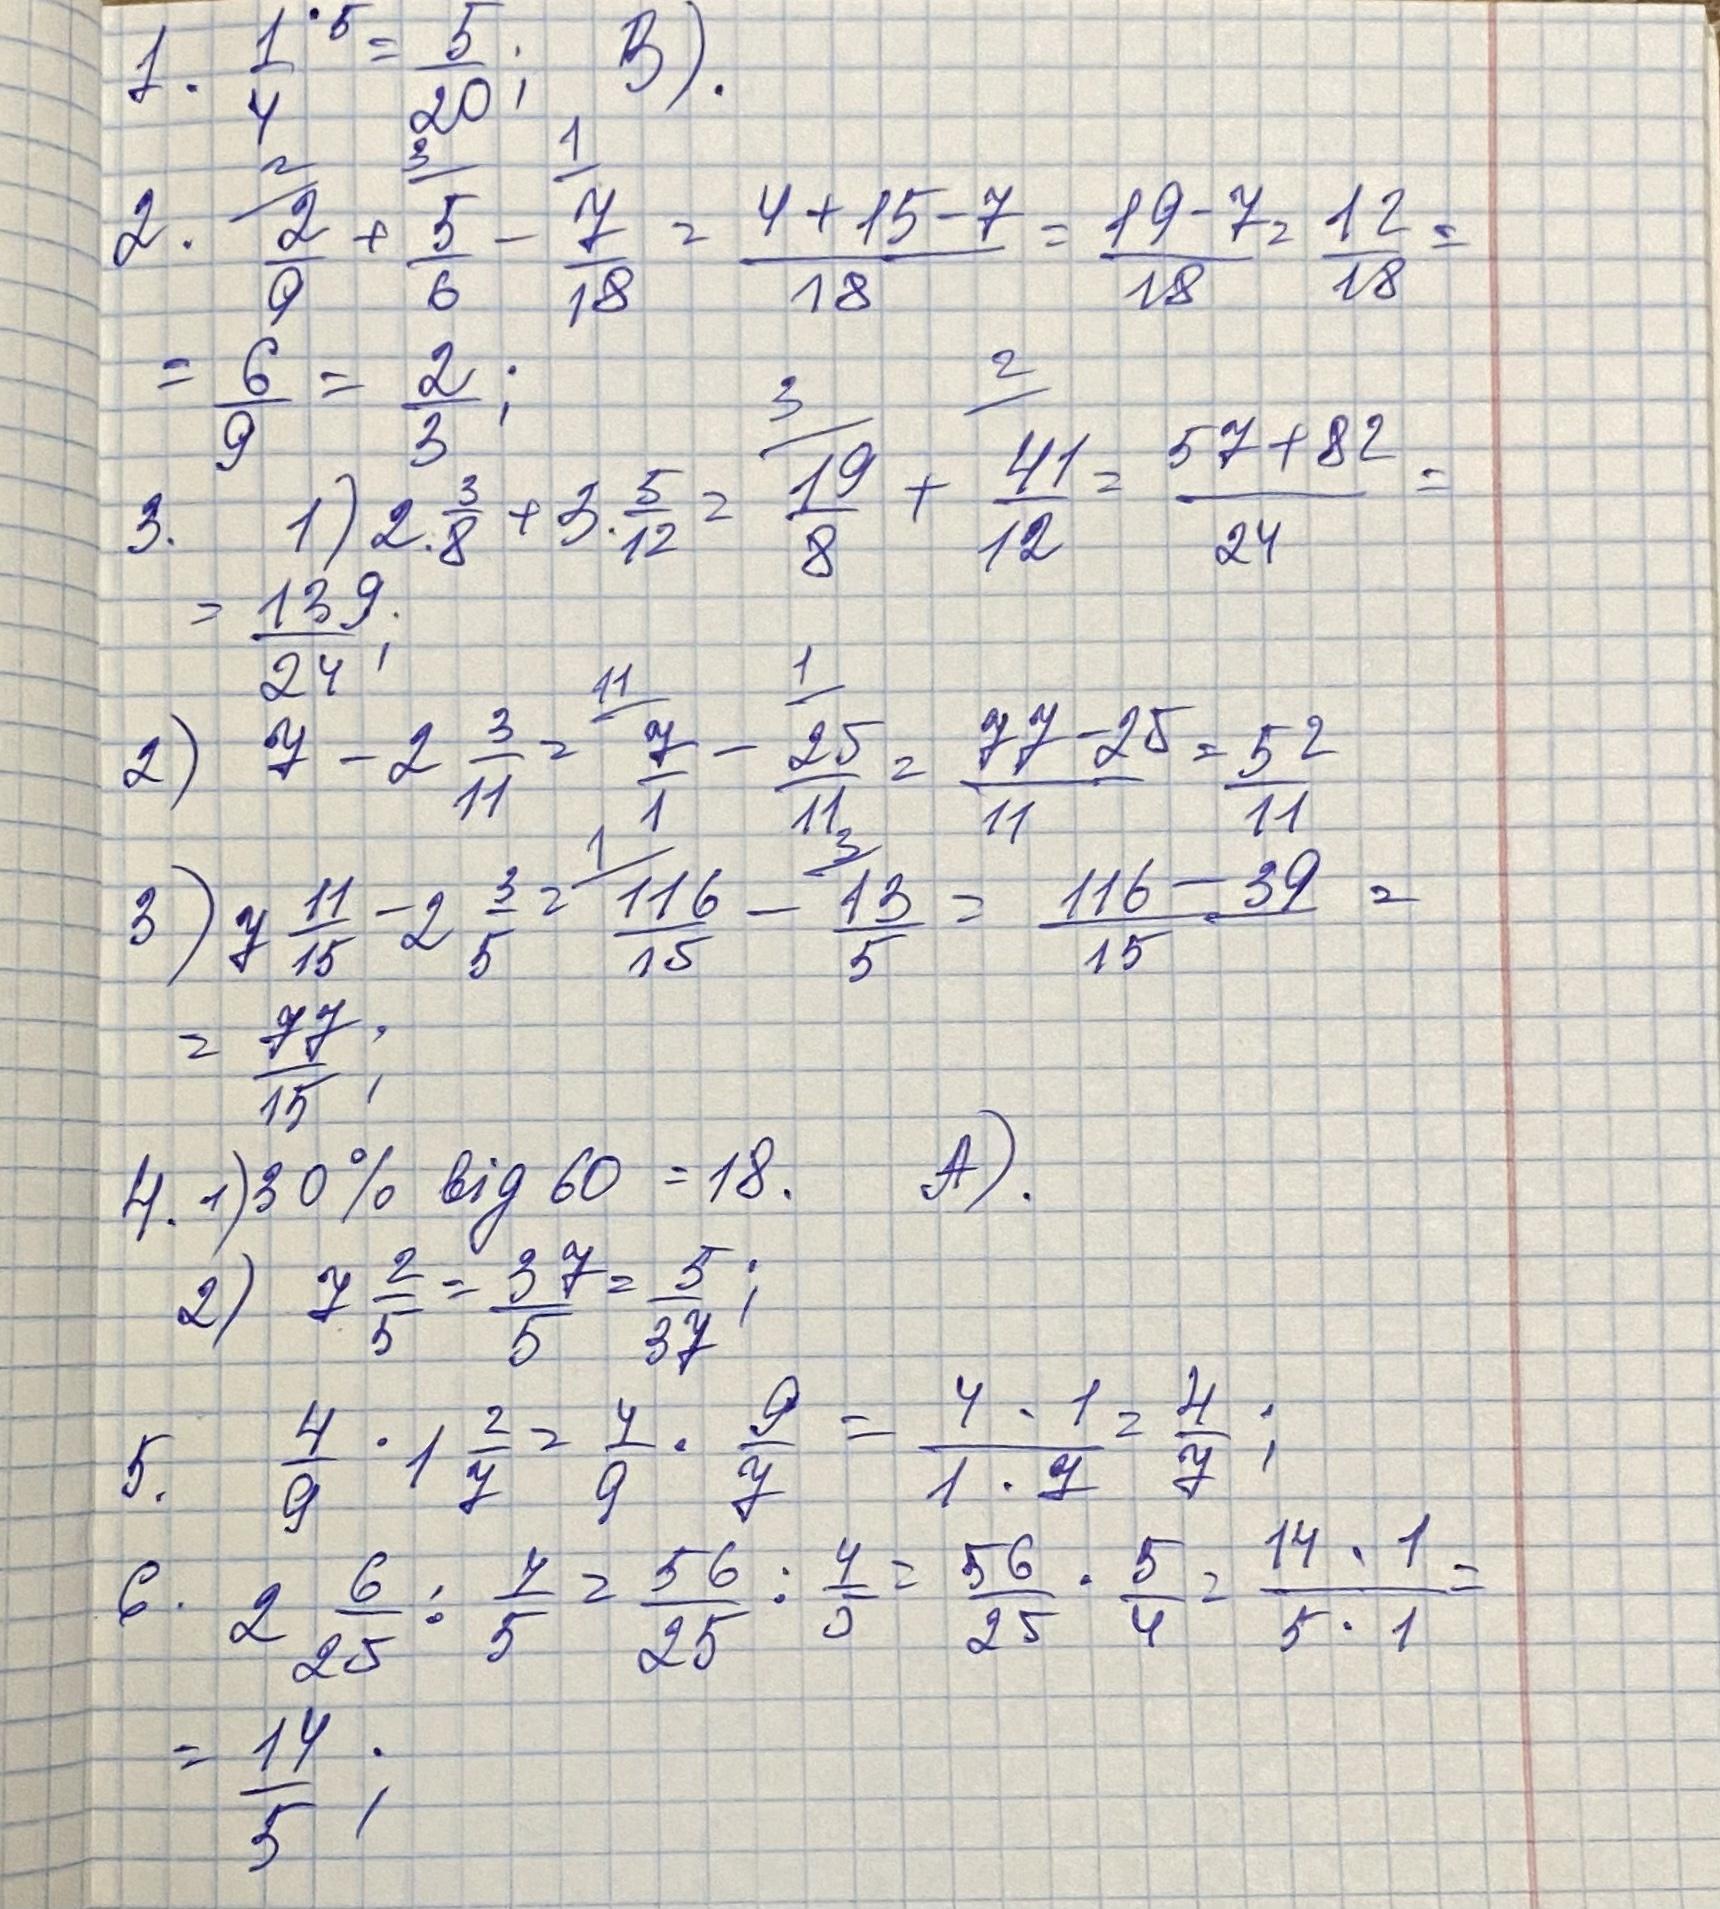 1. 1/4 ·5 = 5/20; В).
2. 2/9 + 5/6 - 7/18 = (4+15-7)/18 = (19-7)/18 = 12/18 =
= 6/9 = 2/3;
3. 1) 2·3/8 + 3·5/12 = 19/8 + 41/12 = (57+82)/24 =
= 139/24;
2) 7 - 2 3/11 = 7/1 - 25/11 = (77-25)/11 = 52/11
3) 7 11/15 - 2 3/5 = 116/15 - 13/5 = (116-39)/15 =
= 77/15;
4. 1) 30% від 60 = 18. А).
2) 7 2/5 = 37/5 = 5/37;
5. 4/9 · 1 2/7 = 4/9 · 9/7 = (4·1)/(1·7) = 4/7;
6. 2 6/25 : 4/5 = 56/25 : 4/5 = 56/25 · 5/4 = (14·1)/(5·1) =
= 14/5;